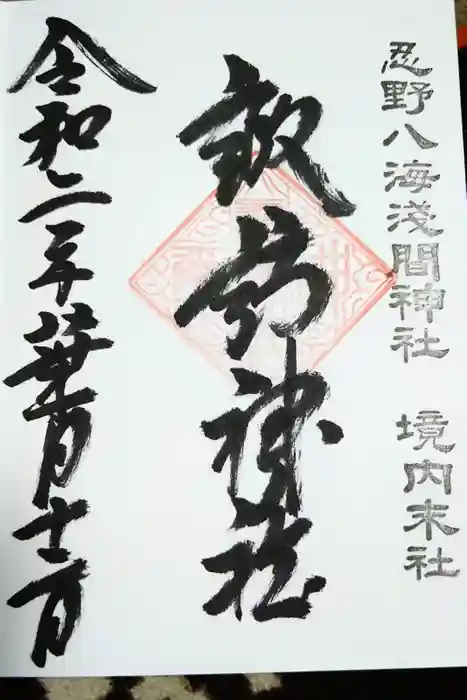 忍野八海淺間神社 境内末社
諏訪神社
令和二年葉月十二日